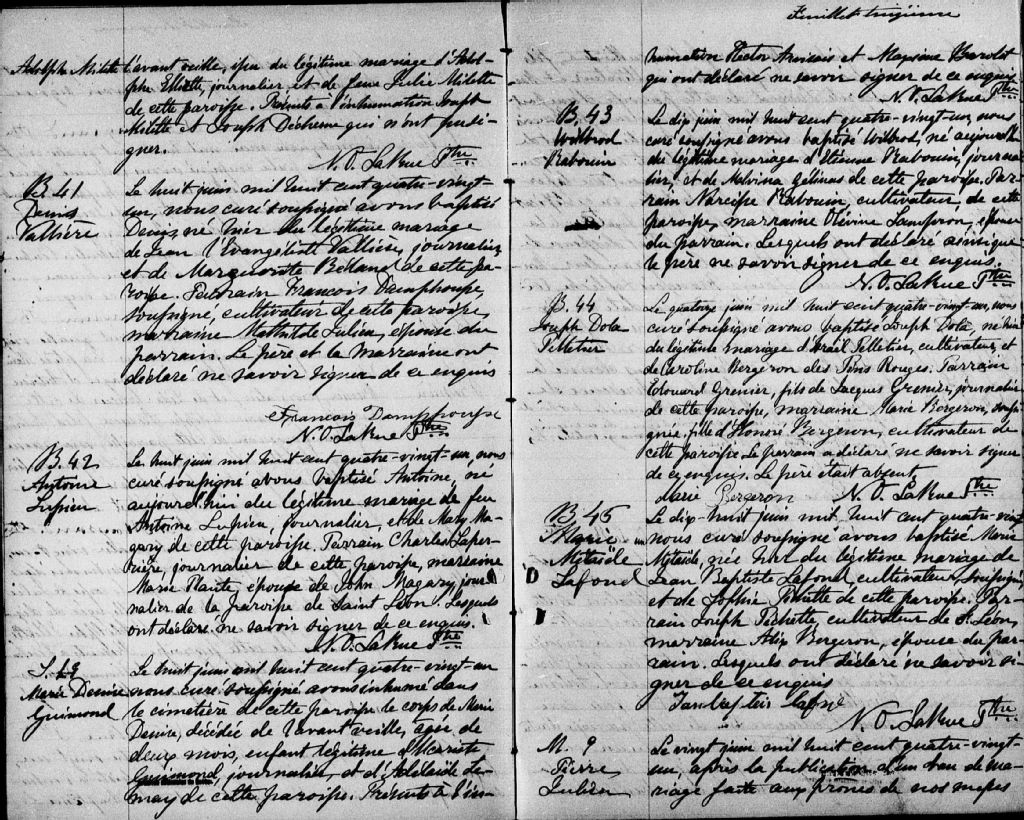 Adolphe Milette
l'avant veille, issu du légitime mariage d'Adol-
phe Milette, journalier et de feue Julie Milette
de cette paroisse. Présents à l'inhumation Joseph
Milette et Joseph Déchesne qui n'ont pu si-
gner.
N. O. LaRue Ptre
B. 41
Denis
Vallière
Le huit juin mil huit cent quatre-vingt-
un, nous curé soussigné avons baptisé
Denis, né hier du légitime mariage
de Jean l'Evangéliste Vallière, journalier,
et de Marguerite Béland de cette pa-
roisse. Parrain François Damphousse,
soussigné, cultivateur de cette paroisse,
marraine Mathilde Julien, épouse du
parrain. Le père et la marraine ont
déclaré ne savoir signer de ce enquis
François Damphousse
N. O. LaRue Ptre
B. 42
Antoine
Lupien
Le huit juin mil huit cent quatre-vingt-un, nous
curé soussigné avons baptisé Antoine, né
aujourd'hui du légitime mariage de feu
Antoine Lupien, journalier, et de Mary Ma-
gary de cette paroisse. Parrain Charles Laper-
rière, journalier de cette paroisse, marraine
Marie Plante, épouse de John Magary, jour-
nalier de la paroisse de Saint Léon. Lesquels
ont déclaré ne savoir signer de ce enquis.
N. O. LaRue Ptre
S.
Marie Denise
Guimond
Le huit juin mil huit cent quatre-vingt-un
nous curé soussigné avons inhumé dans
le cimetière de cette paroisse le corps de Marie
Denise, décédée de l'avant veille, agée de
deux mois, enfant légitime
Guimond, journalier, et d'Adélaïde Le-
may de cette paroisse. Présents à l'in-
Feuillet trigième
humation Hector et
qui ont déclaré ne savoir signer de ce enquis
N. O. LaRue Ptre
B. 43
Wilbrod
Rabouin
Le dix juin mil huit cent quatre-vingt-un, nous
curé soussigné avons baptisé Wilbrod, né aujourd'hui
du légitime mariage d'Etienne Rabouin, journa-
lier, et de Melvina Gélinas de cette paroisse. Par-
rain Narcisse Rabouin, cultivateur, de cette
paroisse, marraine Olévine Lamperon, épouse
du parrain. Lesquels ont déclaré ainsi que
le père ne savoir signer de ce enquis.
N. O. LaRue Ptre
B. 44
Joseph Dola
Pelletier
Le quatorze juin mil huit cent quatre-vingt-un, nous
curé soussigné avons baptisé Joseph Dola, né hier
du légitime mariage d'Israël Pelletier, cultivateur, et
de Caroline Bergeron des Pins Rouges. Parrain
Edouard Grenier, fils de Jacques Grenier, journalier
de cette paroisse, marraine Marie Bergeron, soussi-
gnée, fille d'Honoré Bergeron, cultivateur de
cette paroisse. Le parrain a déclaré ne savoir signer
de ce enquis. Le père était absent
Marie Bergeron N. O. LaRue Ptre
B. 45
Marie
Lafond
Le dix-huit juin mil huit cent quatre-vingt-
un nous curé soussigné avons baptisé Marie
née hier du légitime mariage de
Jean Baptiste Lafond, cultivateur, soussigné
et de Sophie de cette paroisse. Par-
rain Joseph Pichette, cultivateur de S. Léon,
marraine Alix Bergeron, épouse du par-
rain. Lesquels ont déclaré ne savoir si-
gner de ce enquis
N. O. LaRue Ptre
M. 9
Pierre
Le vingt juin mil huit cent quatre-vingt-
un, après la publication d'un ban de ma-
riage faite aux prônes de nos messes